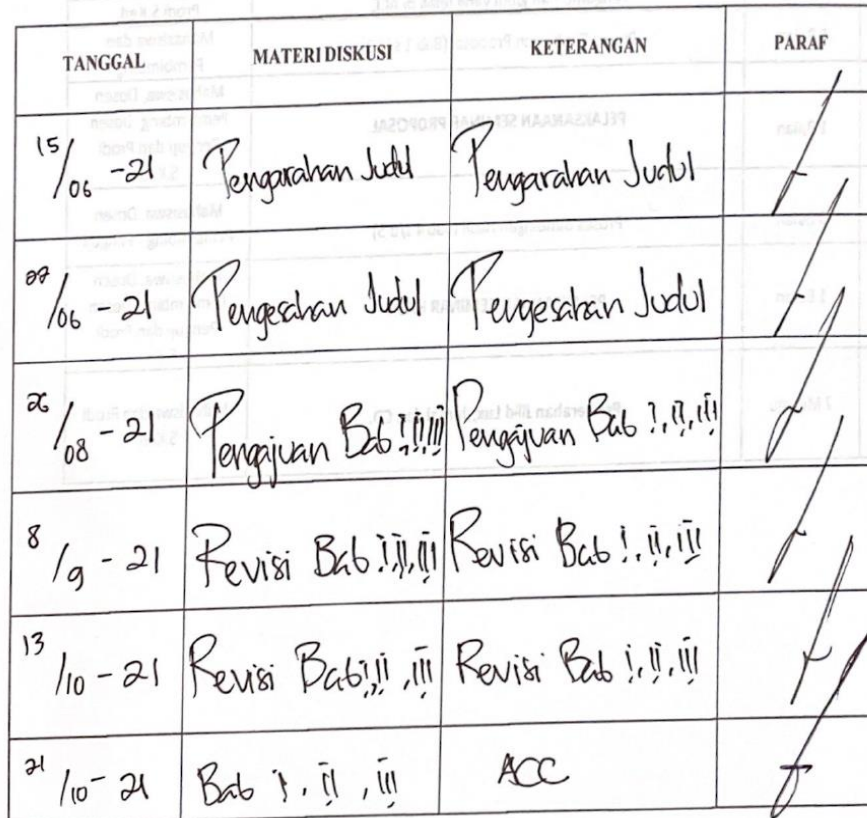 TANGGAL MATERI DISKUSI KETERANGAN PARAF
15/06 - 21 Pengarahan Judul Pengarahan Judul
22/06 - 21 Pengesahan Judul Pengesahan Judul
26/08 - 21 Pengajuan Bab I, II, III Pengajuan Bab I, II, III
8/9 - 21 Revisi Bab I, II, III Revisi Bab I, II, III
13/10 - 21 Revisi Bab I, II, III Revisi Bab I, II, III
21/10 - 21 Bab I, II, III ACC